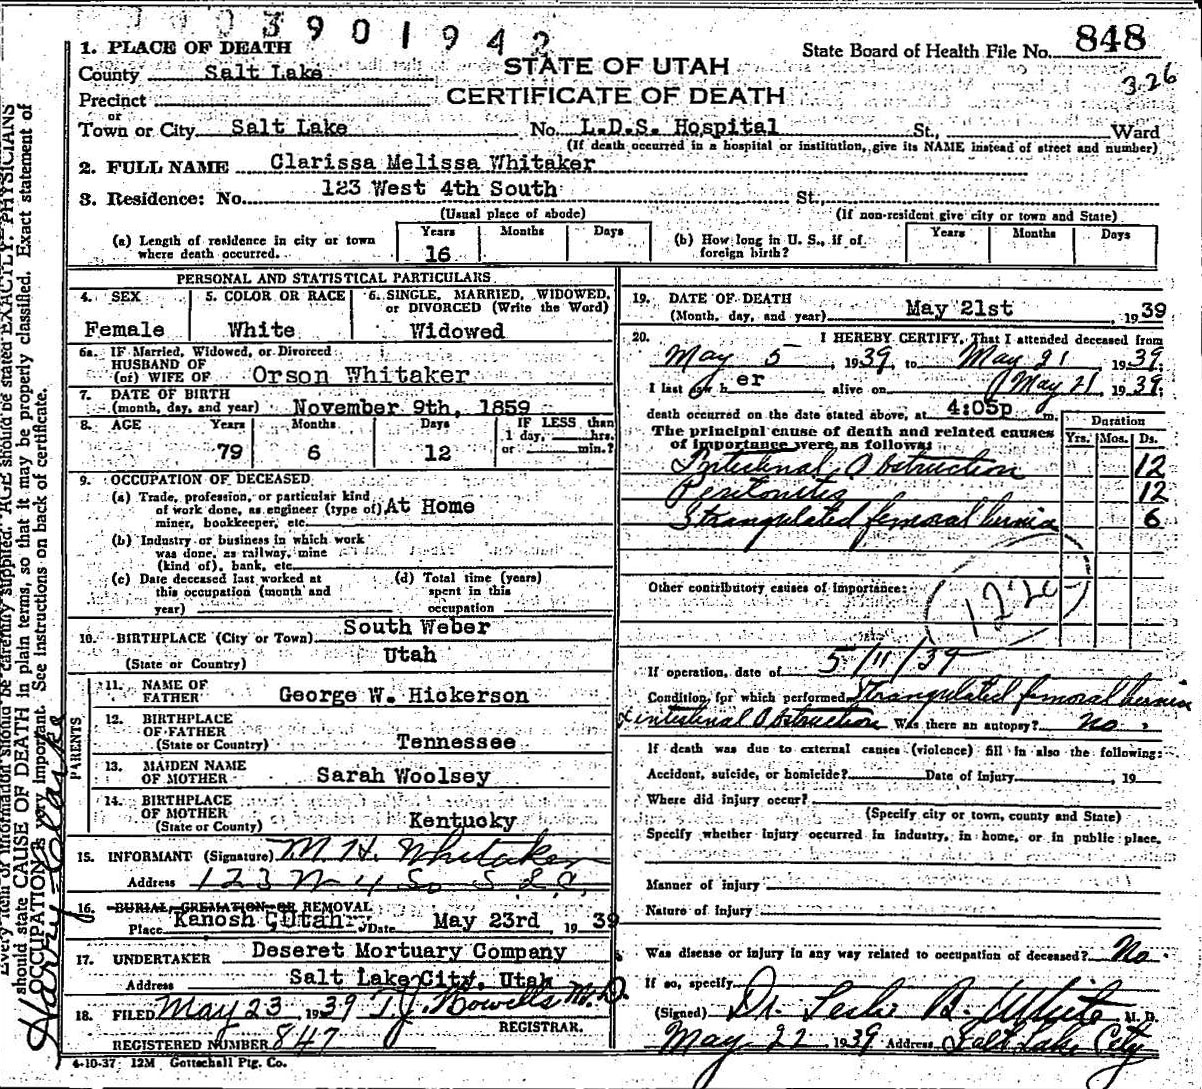 3901942
1. PLACE OF DEATH
State Board of Health File No. 848
County Salt Lake
STATE OF UTAH
326
Precinct
CERTIFICATE OF DEATH
or
Town or City Salt Lake No. L.D.S. Hospital St., Ward
(If death occurred in a hospital or institution, give its NAME instead of street and number)
2. FULL NAME Clarissa Melissa Whitaker
3. Residence: No. 123 West 4th South St.,
(Usual place of abode) (If non-resident give city or town and State)
(a) Length of residence in city or town where death occurred. Years 16 Months Days
(b) How long in U. S., if of foreign birth? Years Months Days
PERSONAL AND STATISTICAL PARTICULARS
4. SEX
Female
5. COLOR OR RACE
White
6. SINGLE, MARRIED, WIDOWED, or DIVORCED (Write the Word)
Widowed
6a. IF Married, Widowed, or Divorced
HUSBAND OF
(of) WIFE OF Orson Whitaker
7. DATE OF BIRTH
(month, day, and year) November 9th, 1859
8. AGE Years 79 Months 6 Days 12
IF LESS than
1 day, hrs.
or min.?
9. OCCUPATION OF DECEASED
(a) Trade, profession, or particular kind
of work done, as engineer (type of) At Home
miner, bookkeeper, etc.
(b) Industry or business in which work
was done, as railway, mine
(kind of), bank, etc.
(c) Date deceased last worked at
this occupation (month and
year)
(d) Total time (years)
spent in this
occupation
10. BIRTHPLACE (City or Town) South Weber
(State or Country) Utah
PARENTS
11. NAME OF
FATHER George W. Hickerson
12. BIRTHPLACE
OF FATHER
(State or Country) Tennessee
13. MAIDEN NAME
OF MOTHER Sarah Woolsey
14. BIRTHPLACE
OF MOTHER
(State or Country) Kentucky
15. INFORMANT (Signature) M. H. Whitaker
Address 123 W 4 So S L C.
16. BURIAL, CREMATION OR REMOVAL
Place Kanosh Utah Date May 23rd, 1939
17. UNDERTAKER Deseret Mortuary Company
Address Salt Lake City, Utah
18. FILED May 23 1939 T. J. Howells M. D.
REGISTRAR.
REGISTERED NUMBER 847
4-10-37 12M Gottschall Ptg. Co.
19. DATE OF DEATH
(Month, day, and year) May 21st, 1939
20. I HEREBY CERTIFY, That I attended deceased from
May 5, 1939, to May 21 1939.
I last saw her alive on May 21, 1939,
death occurred on the date stated above, at 4:05p m.
The principal cause of death and related causes
of importance were as follows:
Duration
Yrs. Mos. Ds.
Intestinal Obstruction 12
Peritonitis 12
Strangulated femoral hernia 6
Other contributory causes of importance:
If operation, date of 5/11/39
Condition for which performed Strangulated femoral hernia
& intestinal Obstruction Was there an autopsy? no
If death was due to external causes (violence) fill in also the following:
Accident, suicide, or homicide? Date of injury , 19
Where did injury occur?
(Specify city or town, county and State)
Specify whether injury occurred in industry, in home, or in public place.
Manner of injury
Nature of injury
Was disease or injury in any way related to occupation of deceased? No
If so, specify
(Signed) Dr. Leslie B. White M. D.
May 22 1939 Address Salt Lake City
should state CAUSE OF DEATH in plain terms, so that it may be properly classified. Exact statement of
OCCUPATION is very important. See instructions on back of certificate.